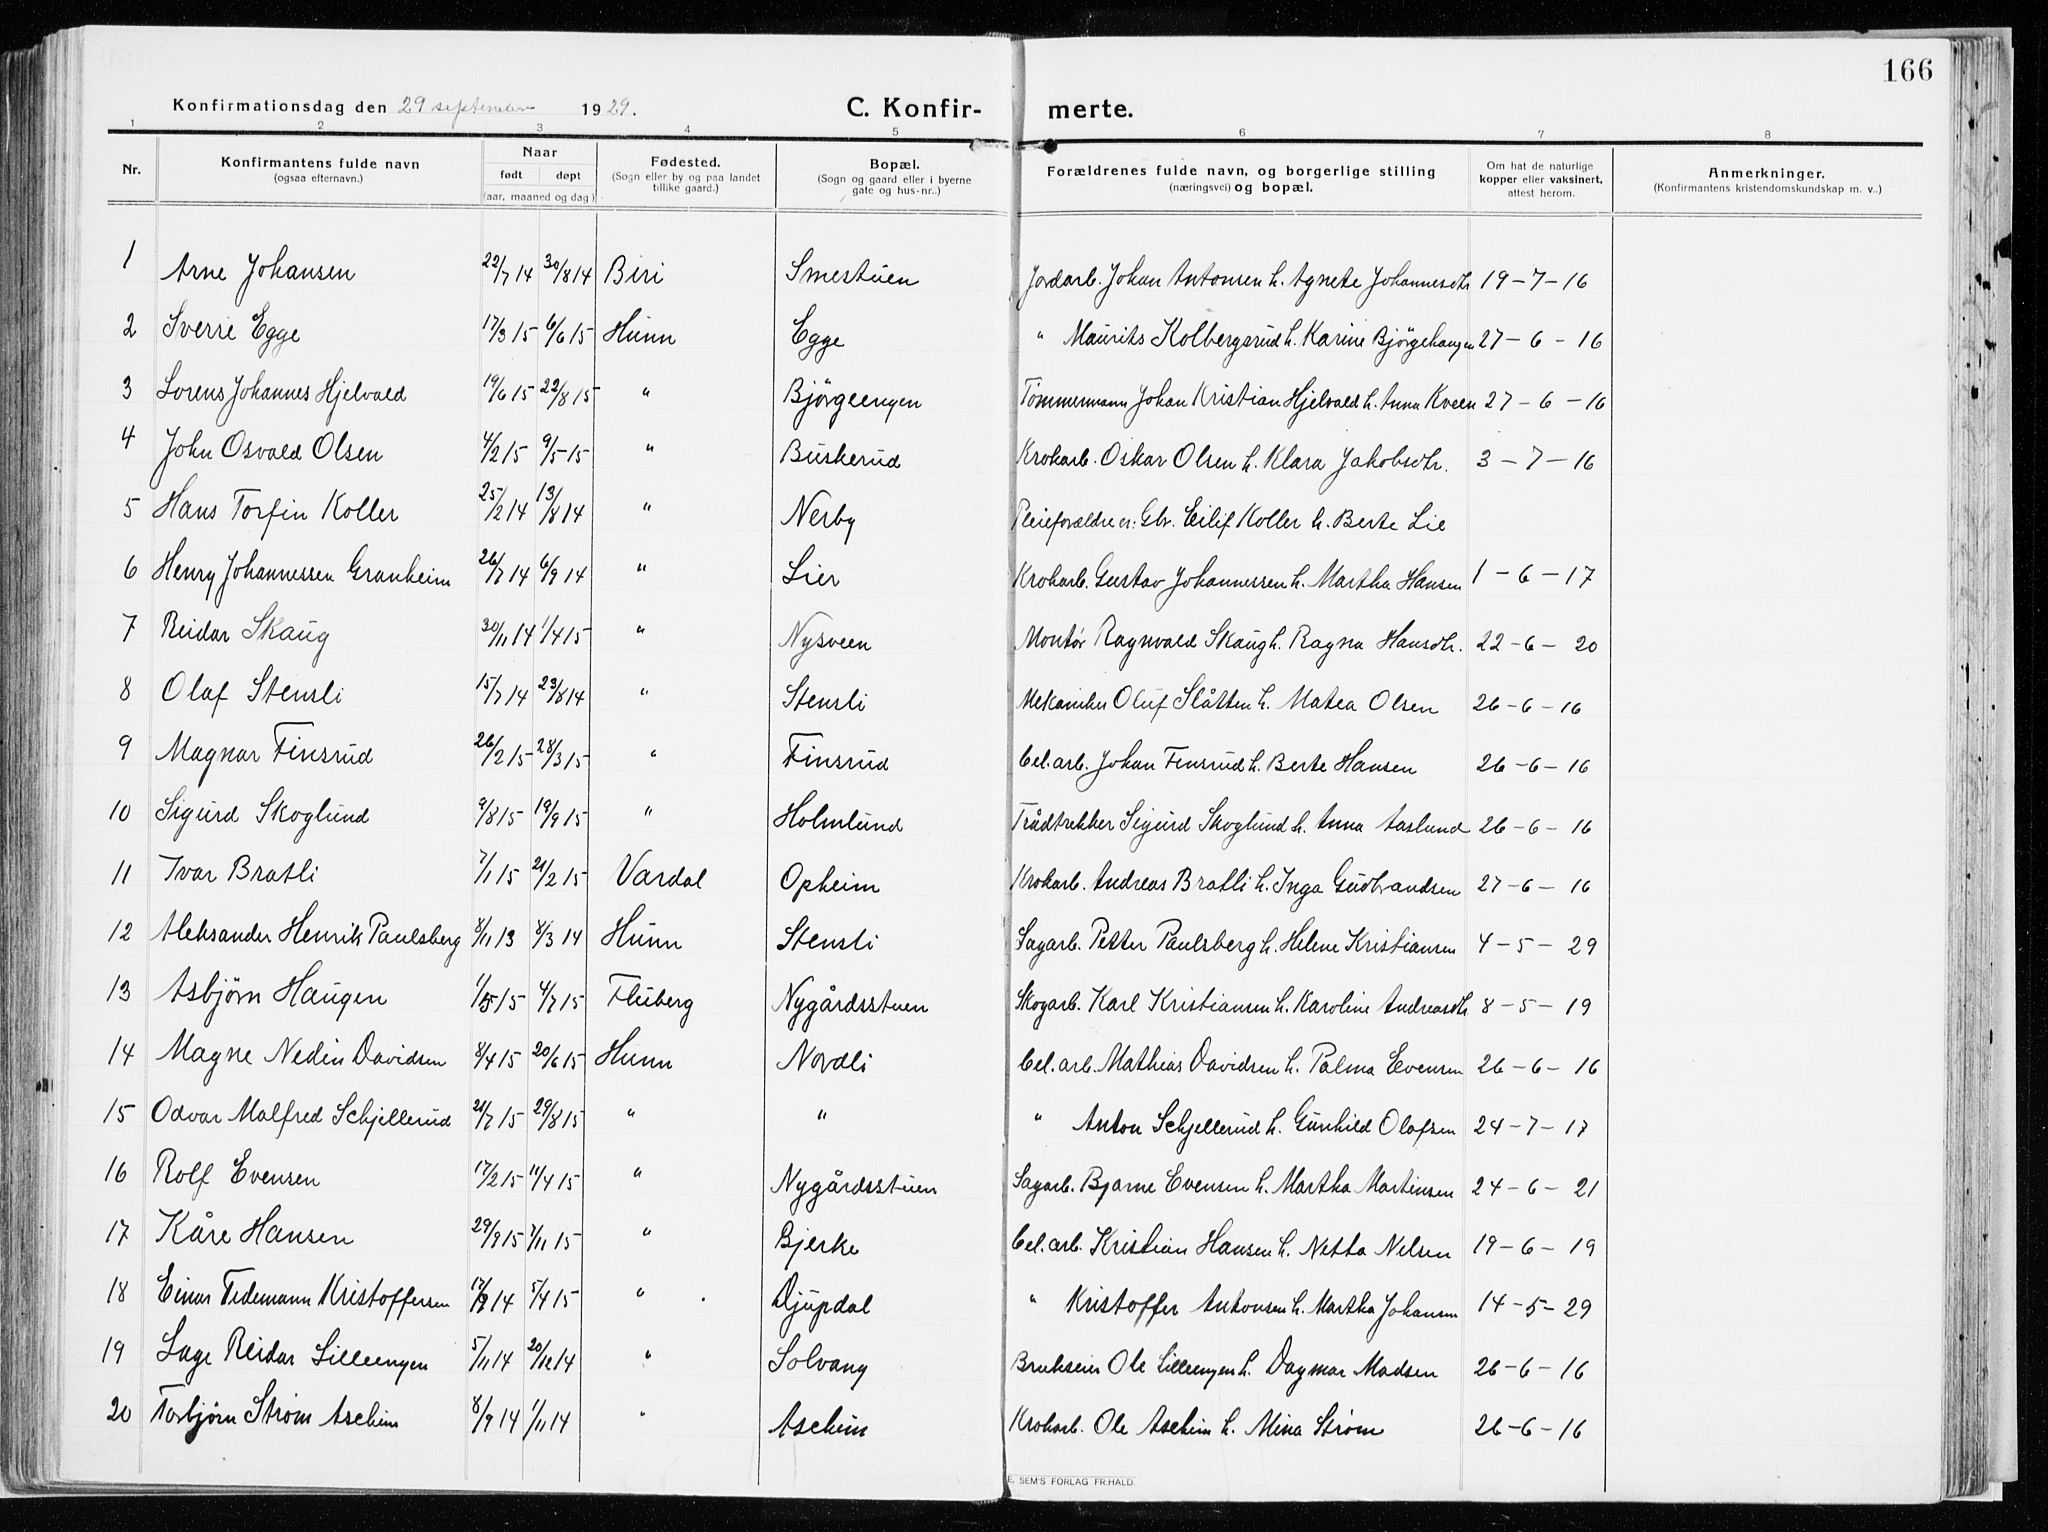 166
Konfirmationsdag den 29 september 1929. C. Konfir- merte.
1 2 3 4 5 6 7 8
Nr. Konfirmantens fulde navn (ogsaa efternavn.) Naar født døpt (aar, maaned og dag) Fødested. (Sogn eller by og paa landet tillike gaard.) Bopæl. (Sogn og gaard eller i byerne gate og hus-nr..) Forældrenes fulde navn, og borgerlige stilling (næringsvei) og bopæl. Om hat de naturlige kopper eller vaksinert, attest herom. Anmerkninger. (Konfirmantens kristendomskundskap m. v..)
1 Arne Johansen 22/7 14 30/8 14 Biri Smestuen Jordarb. Johan Antonsen h. Agnete Johannesdtr 19-7-16
2 Sverre Egge 17/3 15 6/6 15 Hunn Egge " Maurits Kolbergsrud h. Karine Bjørgehaugen 27-6-16
3 Lorens Johannes Hjelvald 19/6 15 22/8 15 " Bjørgeengen Tømmermann Johan Kristian Hjelvald h. Anna Kveen 27-6-16
4 John Osvald Olsen 4/2 15 9/5 15 " Buskerud Krokarb. Oskar Olsen h. Klara Jakobsdtr. 3-7-16
5 Hans Torfin Koller 25/2 14 13/8 14 " Nerby Pleieforældre er: Gbr. Eilif Koller h. Berte Lie
6 Henry Johannessen Granheim 26/7 14 6/9 14 " Lier Krokarb. Gustav Johannessen h. Martha Hansen 1-6-17
7 Reidar Skaug 30/11 14 1/4 15 " Nysveen Montør Ragnvald Skaug h. Ragna Hansdtr. 22-6-20
8 Olaf Stensli 15/7 14 23/8 14 " Stensli Mekaniker Oluf Slåtten h. Matea Olsen 26-6-16
9 Magnar Finsrud 26/2 15 28/3 15 " Finsrud Cel. arb. Johan Finsrud h. Berte Hansen 26-6-16
10 Sigurd Skoglund 9/8 15 19/9 15 " Holmlund Trådtrekker Sigurd Skoglund h. Anna Aaslund 26-6-16
11 Ivar Bratli 7/1 15 21/2 15 Vardal Opheim Krokarb. Andreas Bratli h. Inga Gudbrandsen 27-6-16
12 Aleksander Henrik Paulsberg 8/11 13 8/3 14 Hunn Stensli Sagarb. Petter Paulsberg h. Helene Kristiansen 4-5-29
13 Asbjørn Haugen 1/5 15 4/7 15 Fluberg Nygårdsstuen Skogarb. Karl Kristiansen h. Karoline Andreasdtr 8-5-19
14 Magne Nedin Davidsen 8/4 15 20/6 15 Hunn Nordli Cel. arb. Mathias Davidsen h. Palma Evensen 26-6-16
15 Odvar Malfred Schjellerud 21/7 15 29/8 15 " " " Anton Schjellerud h. Gunhild Olafsen 24-7-17
16 Rolf Evensen 17/2 15 11/4 15 " Nygårdsstuen Sagarb. Bjarne Evensen h. Martha Martinsen 24-6-21
17 Kåre Hansen 29/9 15 7/11 15 " Bjerke Cel. arb. Kristian Hansen h. Netta Nelsen 19-6-19
18 Einar Tidemann Kristoffersen 14 5/4 15 " Djupdal " Kristoffer Antonsen h. Martha Johansen 14-5-29
19 Lage Reidar Lilleengen 5/11 14 20/12 14 " Solvang Brukseier Ole Lilleengen h. Dagmar Madsen 26-6-16
20 Torbjørn Strøm Aseheim 8/9 14 1/11 14 " Aseheim Krokarb. Ole Aseheim h. Mina Strøm 26-6-16
E. SEM'S FORLAG FR.HALD.